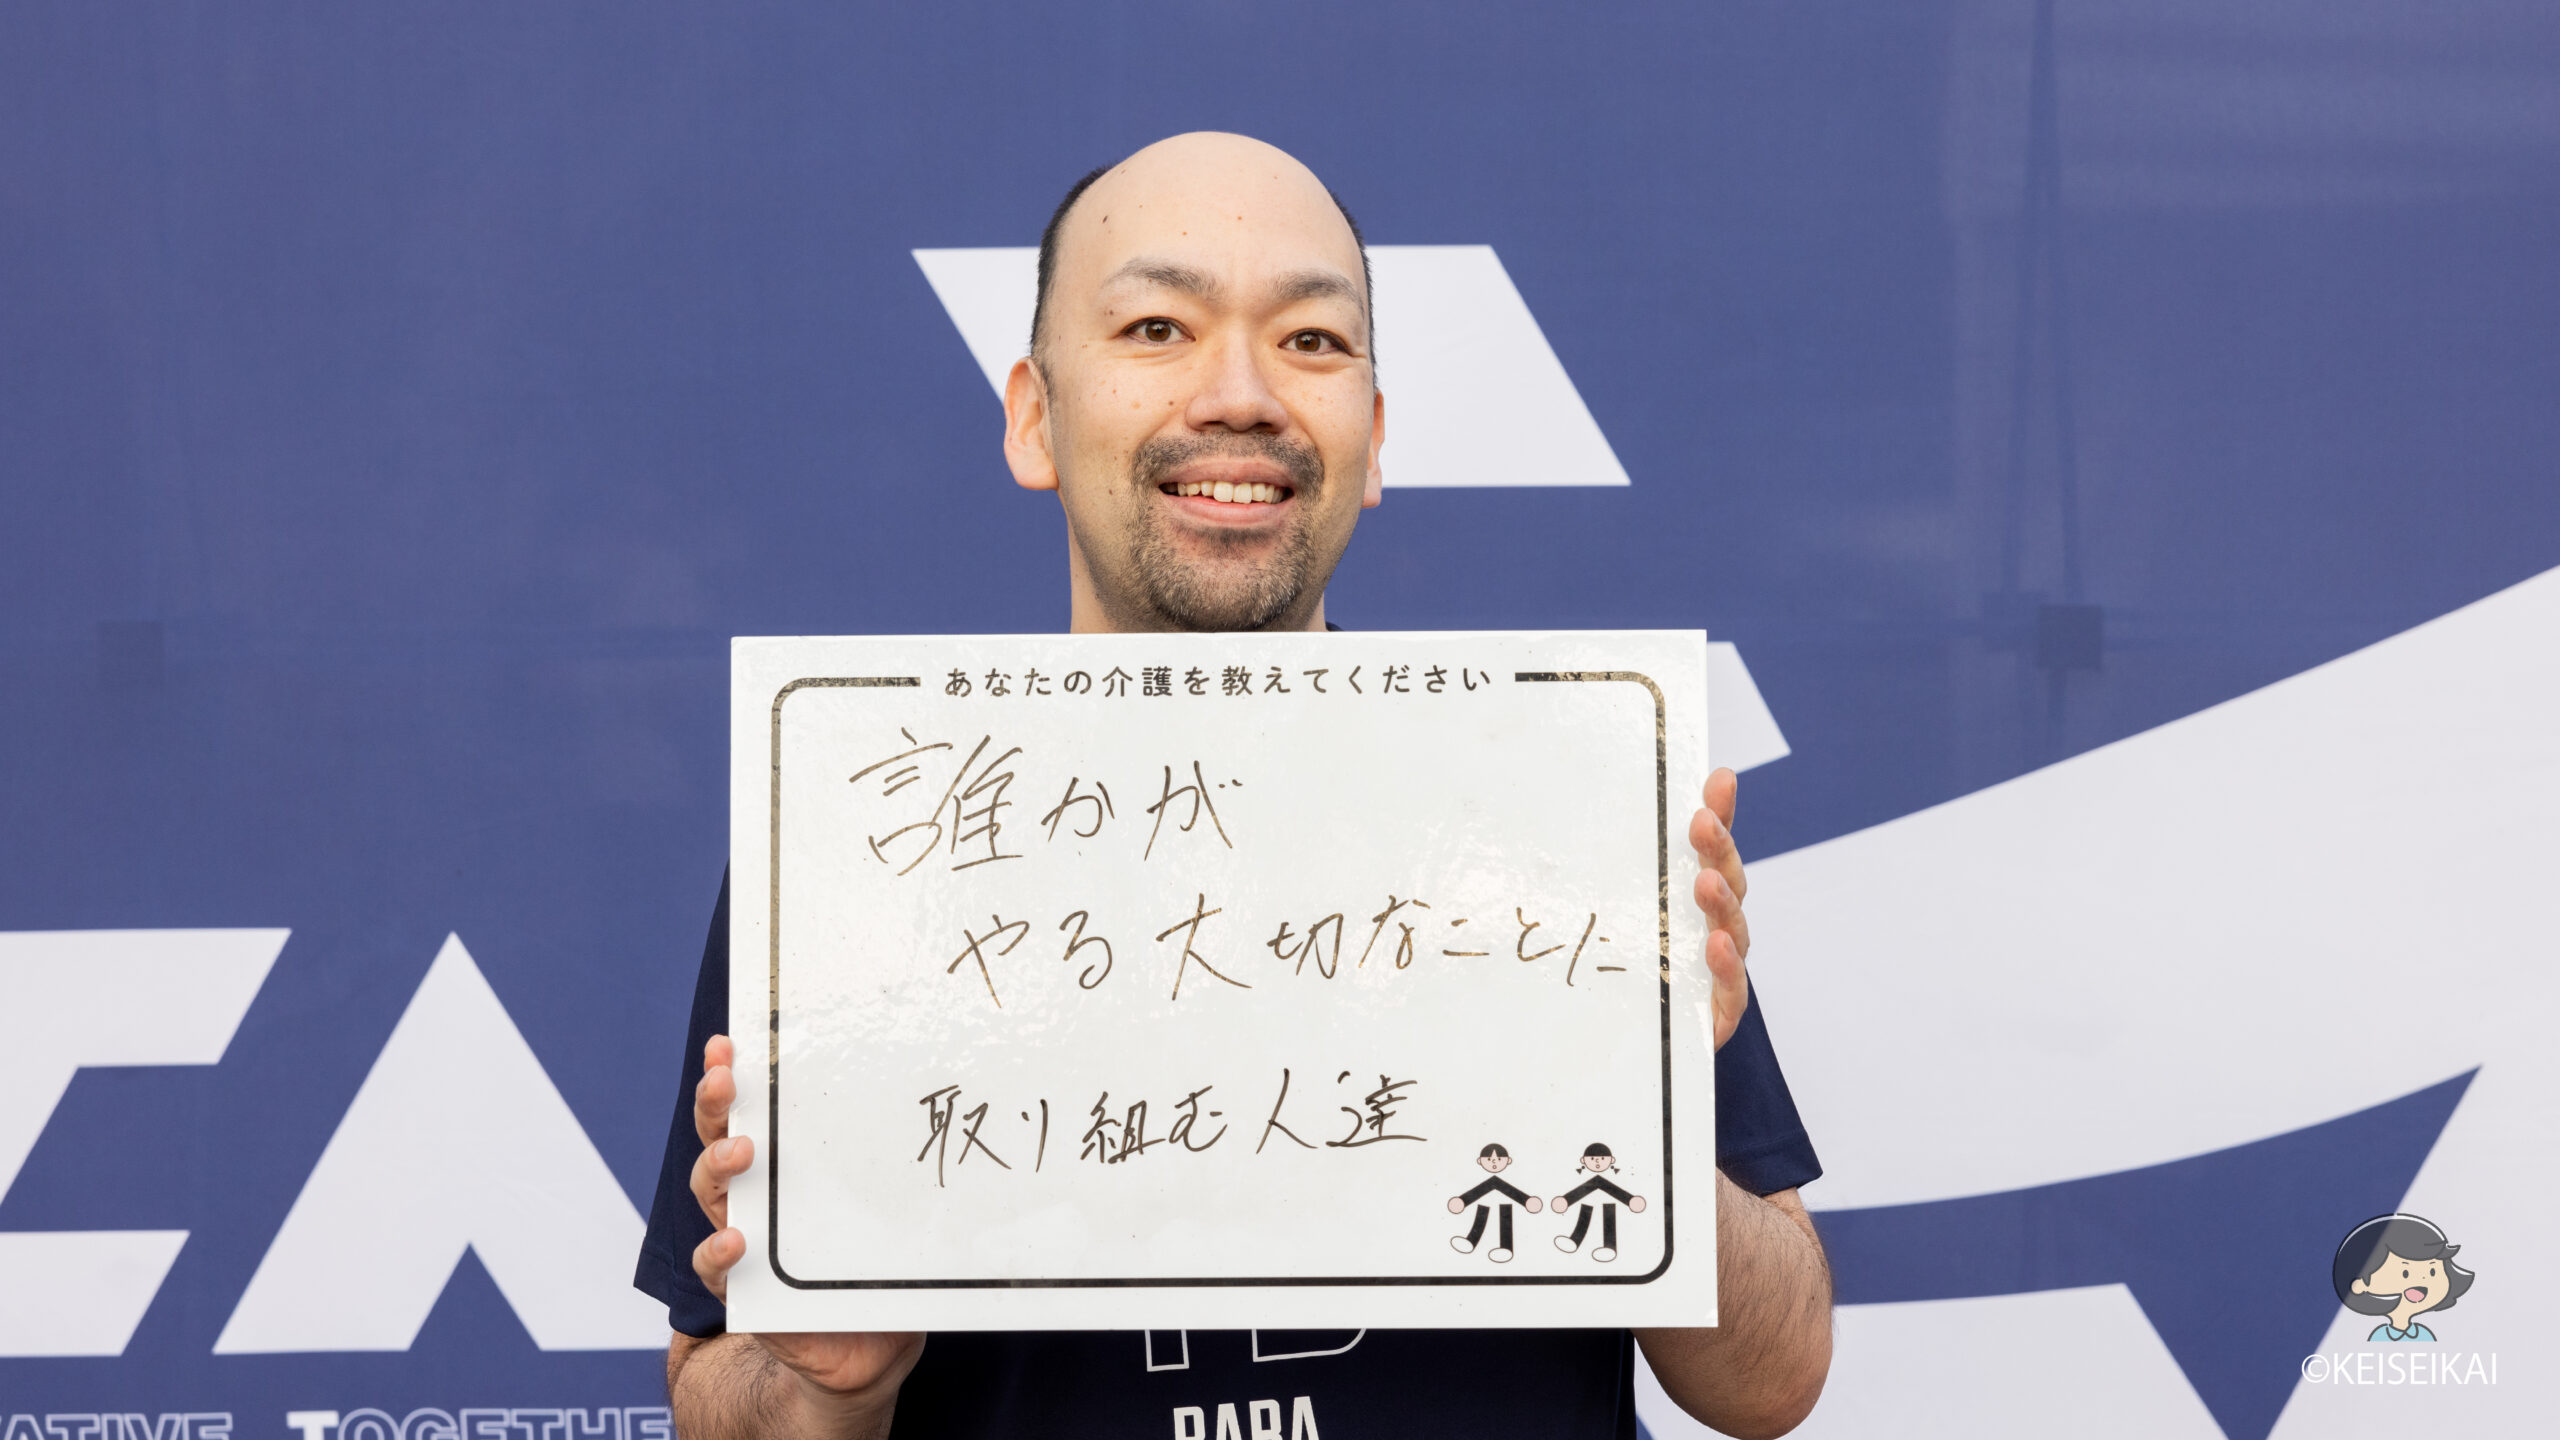 あなたの介護を教えてください
誰かが
やる大切なことに
取り組む人達
PARA
ATIVE TOGETHE
©KEISEIKAI